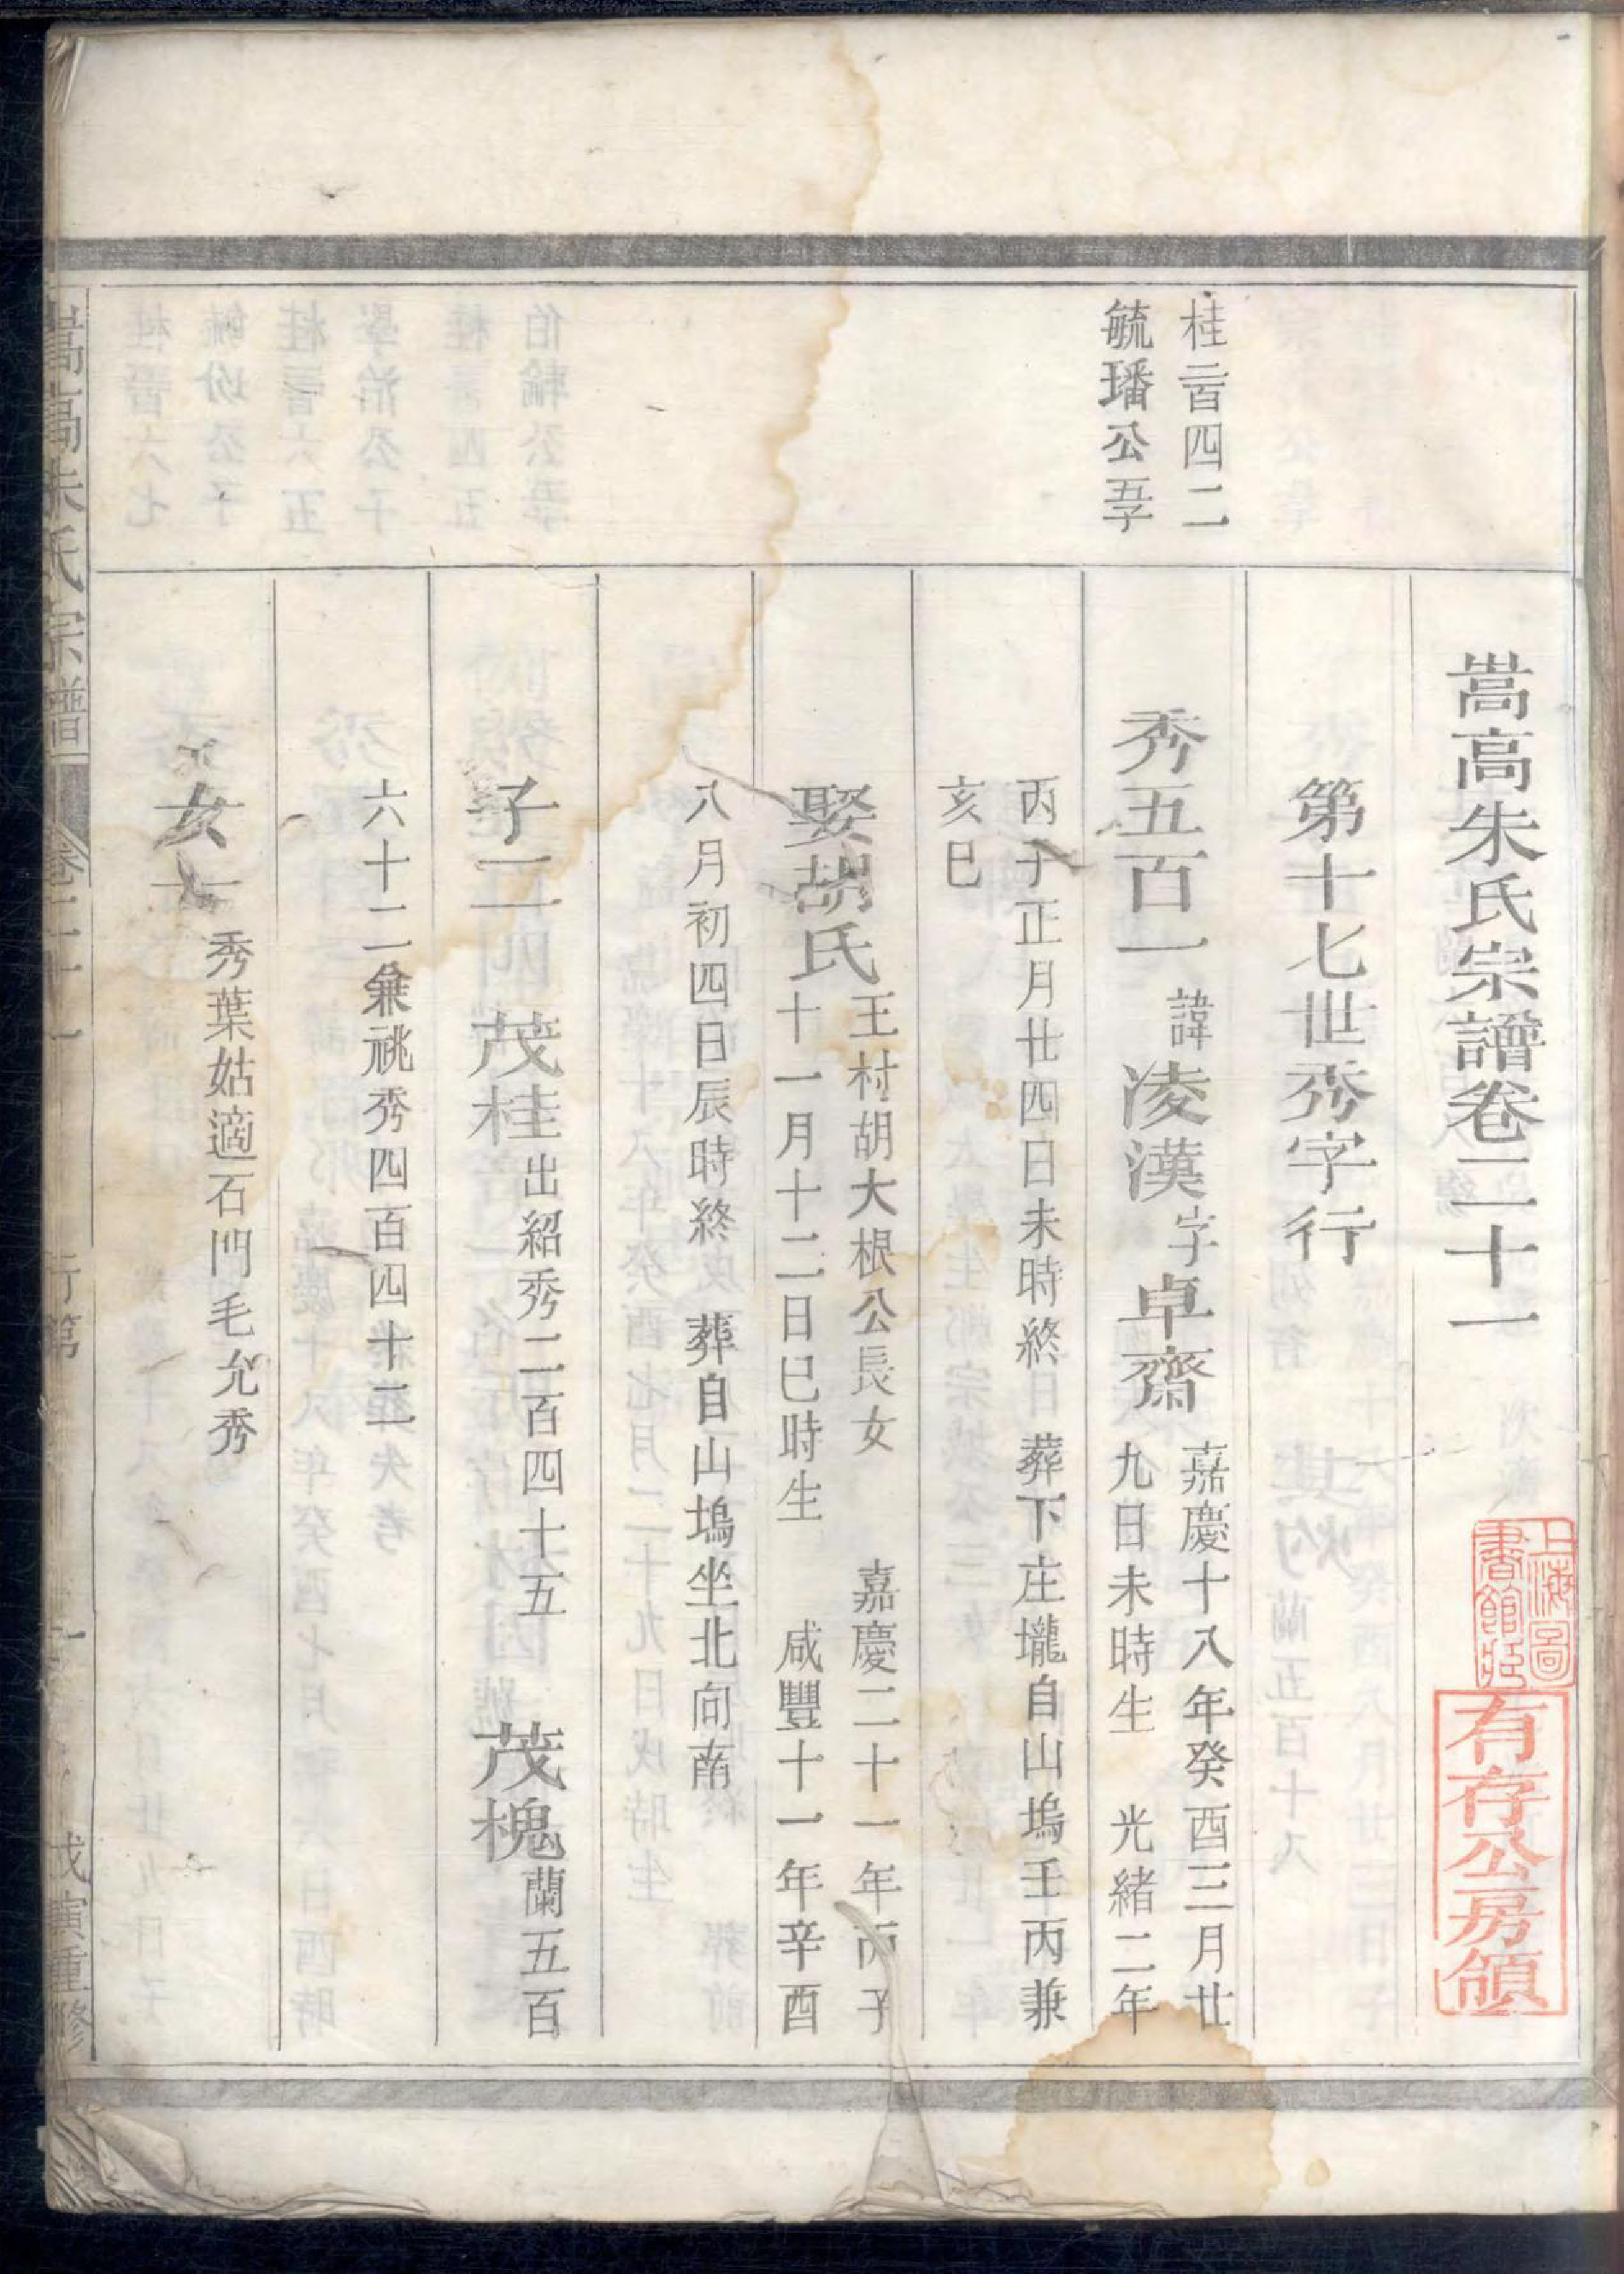 嵩高朱氏宗譜卷二十一
上海圖書館藏
有存公房領
第十七世秀字行
桂二百四二
毓璠公五子
秀五百一 諱凌漢字卓齋 嘉慶十八年癸酉三月廿
九日未時生 光緒二年
丙子正月廿四日未時終 葬下庄壠自山塢壬丙兼
亥巳
娶胡氏 王村胡大根公長女 嘉慶二十一年丙子
十一月十二日巳時生 咸豐十一年辛酉
八月初四日辰時終 葬自山塢坐北向南
子二 茂桂出紹秀二百四十五 茂槐蘭五百
六十二兼祧秀四百四十二
女一 秀葉姑適石門毛允秀
嵩高朱氏宗譜 卷二十一 行第 一 戊寅重修